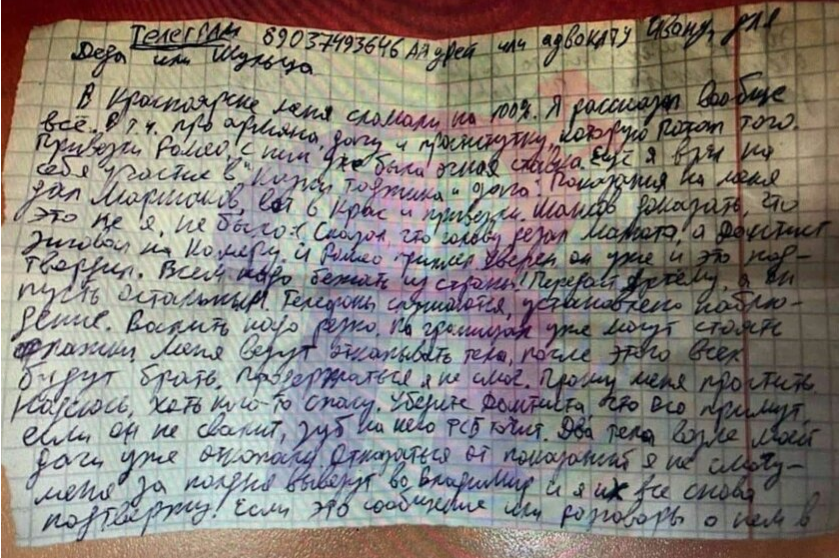 Телеграм 89037493646 Андрей или адвокату Ивану, для
Деда или Шульца
В Красноярске меня сломали на 100%. Я рассказал вообще
всё. В т.ч. про армяна, дачу и проститутку, которую потом того.
Привезли Ромео, с ним уже была очная ставка. Ещё я взял на
себя участие в "Казни таджика и дага". Показания на меня
дал Маршаков, его в Крас и привезли. Шансов доказать, что
это не я, не было. Сказал, что голову резал Мамота, а Дантист
зиговал на камеру. И Ромео тоже. Уверен он уже и это под-
твердил. Всем надо бежать из страны! Передай Артему, а он
пусть остальным. Телефоны слушаются, установлено наблю-
дение. Валить надо резко, на границах уже могут стоять
флажки. Меня везут откапывать тела, после этого всех
будут брать. Продержаться я не смог. Прошу меня простить.
Надеюсь, хоть кого-то спасу. Уберите Дантиста, его все примут,
если он не свалит, зуб на него ФСБ точит. Два тела возле моей
дачи уже откопали. Отказаться от показаний я не смогу-
меня за полдня вывезут во Владимир и я их все снова
подтвержу. Если это сообщение или разговоры о нем в